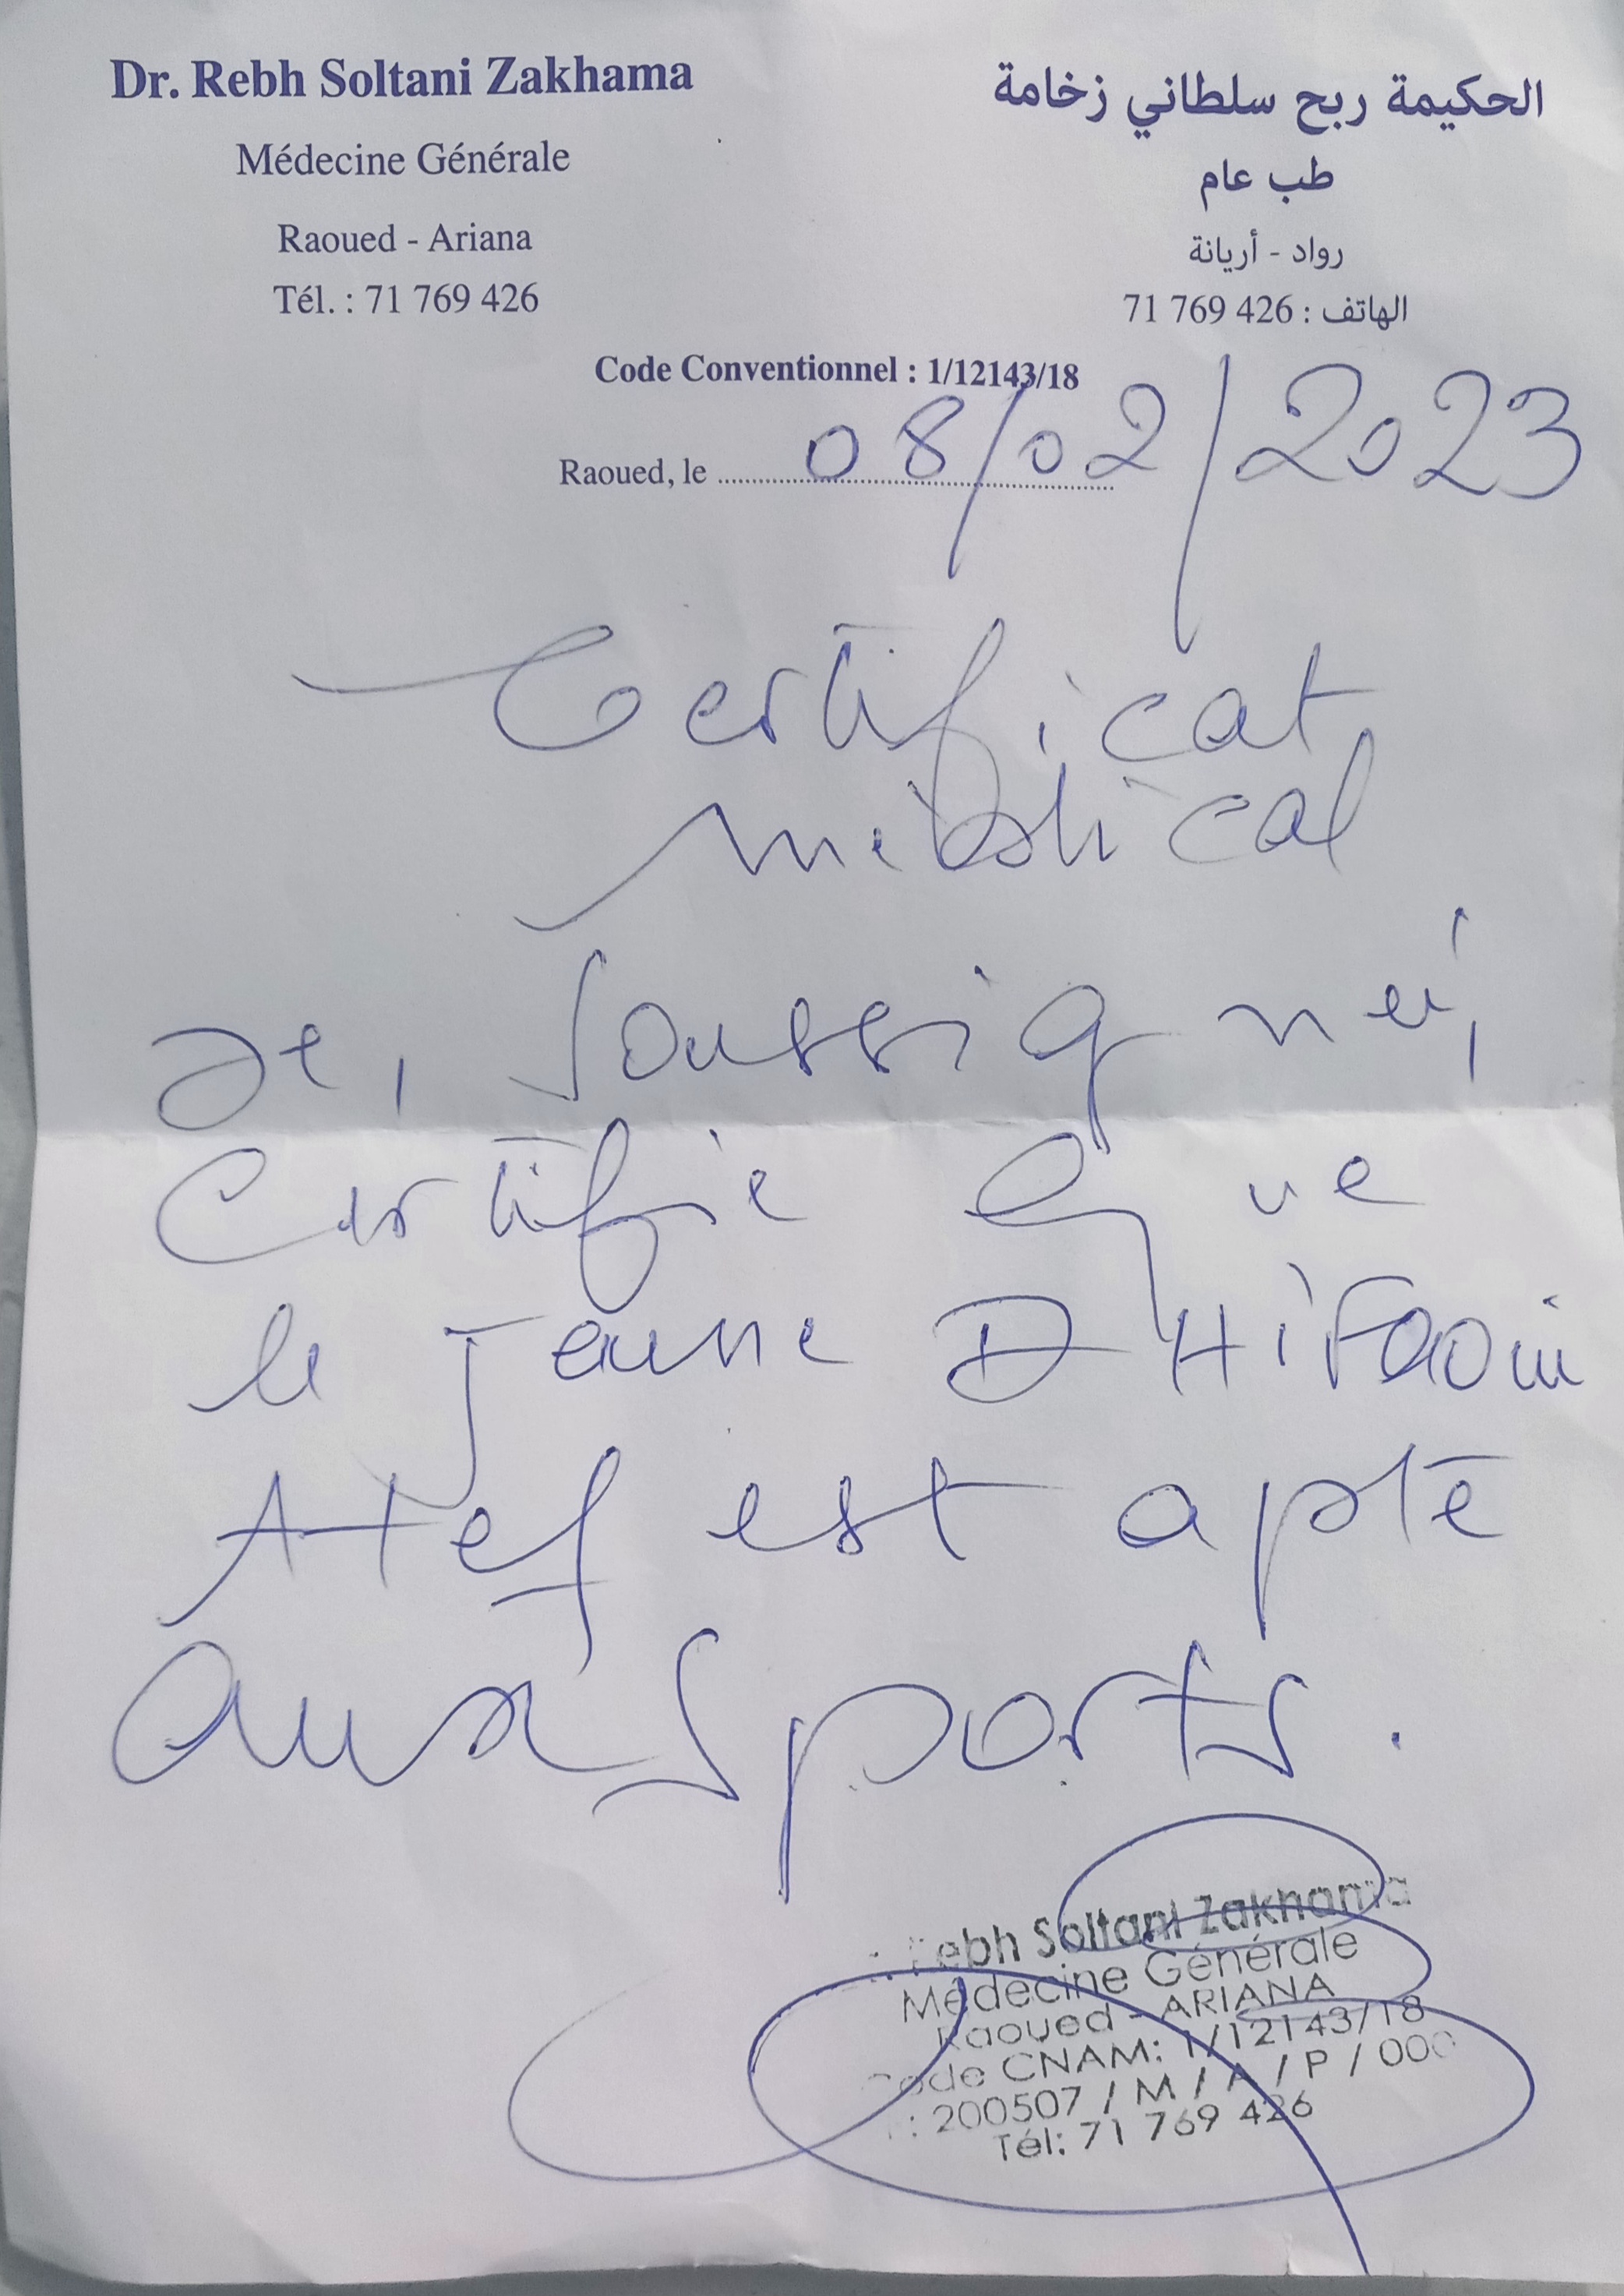 Dr. Rebh Soltani Zakhama
Médecine Générale
Raoued - Ariana
Tél. : 71 769 426
الحكيمة ربح سلطاني زخامة
طب عام
رواد - أريانة
الهاتف : 426 769 71
Code Conventionnel : 1/12143/18
Raoued, le 08/02/2023
Certificat
médical
Je, soussigné,
Certifie que
le jeune DHifaoui
Atef est apte
aux sports.
Rebh Soltani Zakhama
Médecine Générale
Raoued - ARIANA
Code CNAM: 1/12143/18
: 200507 / M / A / P / 000
Tél: 71 769 426